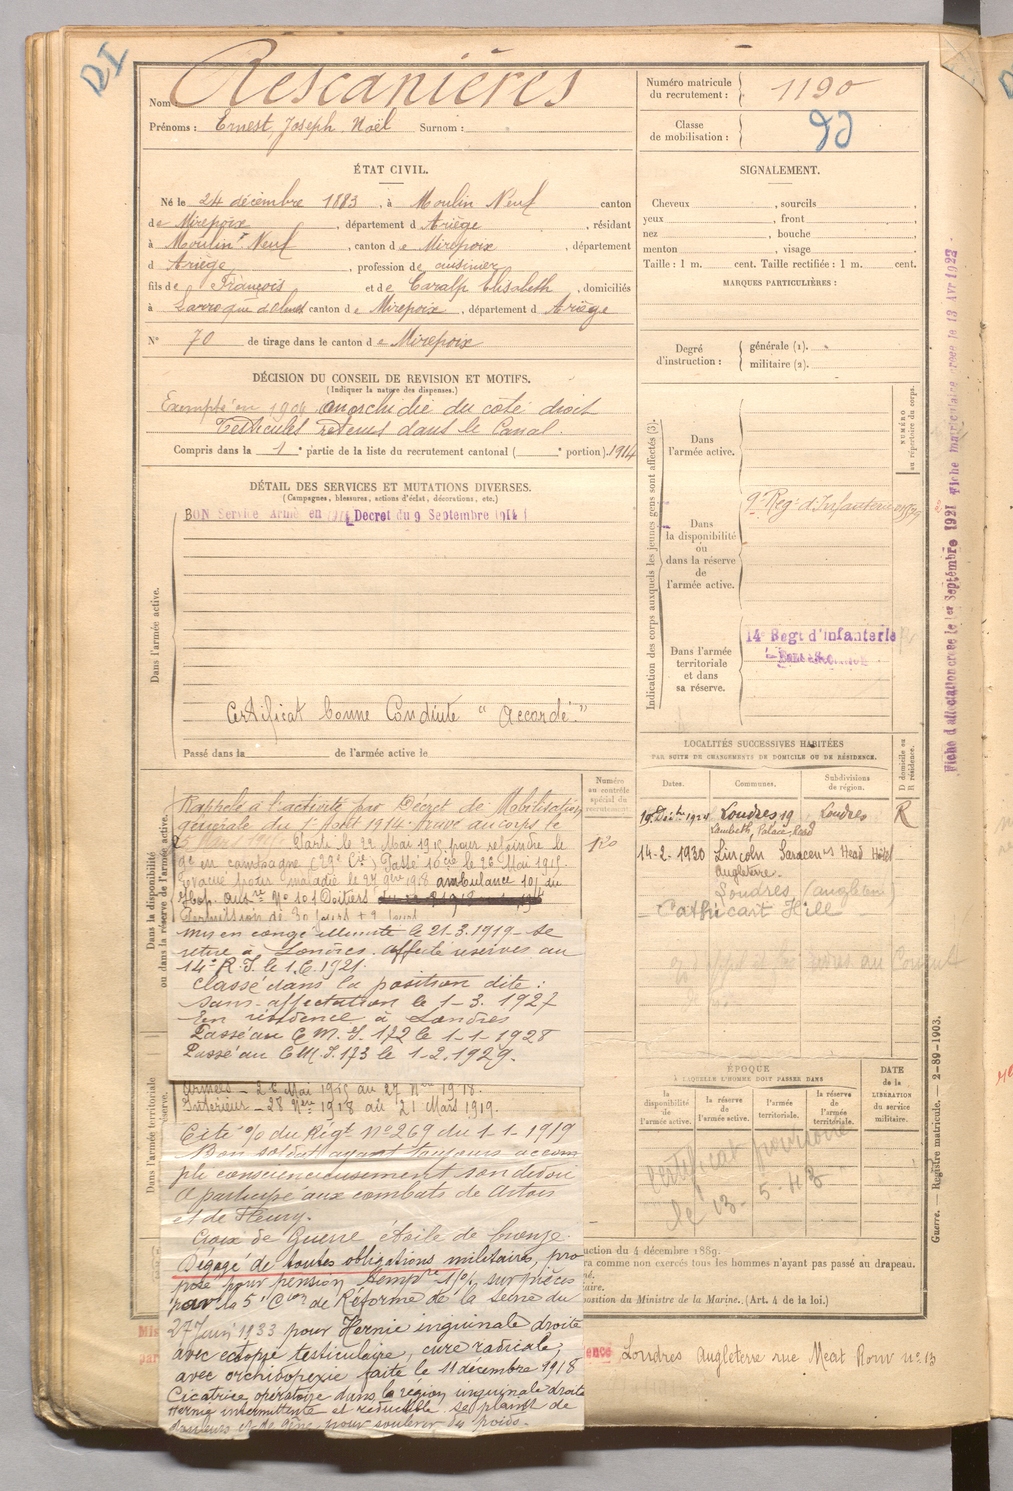 DI
Nom Rescanières
Prénoms : Ernest, Joseph, Noël Surnom :
Numéro matricule
du recrutement : 1190
Classe
de mobilisation :
ÉTAT CIVIL.
Né le 24 décembre 1883, à Moulin Neuf canton
de Mirepoix, département d Ariège, résidant
à Moulin Neuf, canton de Mirepoix, département
d Ariège, profession de cuisinier
fils de François et de Caralp Elisabeth, domiciliés
à Larroque d'olmes canton de Mirepoix, département d Ariège
N° 70 de tirage dans le canton de Mirepoix
SIGNALEMENT.
Cheveux , sourcils ,
yeux , front ,
nez , bouche ,
menton , visage
Taille : 1 m. cent. Taille rectifiée : 1 m. cent.
MARQUES PARTICULIÈRES :
Degré
d'instruction :
générale (1).
militaire (2).
DÉCISION DU CONSEIL DE REVISION ET MOTIFS.
(Indiquer la nature des dispenses.)
Exempté en 1904 anorchidie du coté droit
Testicules retenus dans le Canal.
Compris dans la 1e partie de la liste du recrutement cantonal ( e portion). 1914
DÉTAIL DES SERVICES ET MUTATIONS DIVERSES.
(Campagnes, blessures, actions d'éclat, décorations, etc.)
BON Service Armé en 1914 Décret du 9 Septembre 1914
Dans l'armée active.
Certificat bonne Conduite "Accordé."
Passé dans la de l'armée active le
Indication des corps auxquels les jeunes gens sont affectés (3).
NUMÉRO
au répertoire du corps.
Dans
l'armée active.
Dans
la disponibilité
ou
dans la réserve
de
l'armée active.
9e Reg. d'Infanterie
Dans l'armée
territoriale
et dans
sa réserve.
14e Regt d'Infanterie
Fiche d'affectation créée le 1er Septembre 1921 Fiche matriculaire créée le 13 Avr 1923
LOCALITÉS SUCCESSIVES HABITÉES
PAR SUITE DE CHANGEMENTS DE DOMICILE OU DE RÉSIDENCE.
Dates. Communes. Subdivisions
de région.
D domicile ou
R résidence.
Londres 19 Londres R
Lambeth, Palace, Road
14-2-1930 Lincoln Saracen's Head Hôtel
Angleterre.
Londres (angleterre)
Cathcart Hill
Dans la disponibilité
ou dans la réserve de l'armée active.
Numéro
au contrôle
spécial du
recrutement
Rappelé à l'activité par Décret de Mobilisation
générale du 1er Août 1914. Arrivé au corps le
25 Mars 1915. Parti le 22 Mai 1915 pour rejoindre le
9e en campagne (29e Cie) Passé 10e Cie le 26 Mai 1915.
Evacué pour maladie le 27 9bre 1918 ambulance 101 du
Hop. auxre N° 101 Poitiers
Permission de 30 jours + 2 jours
mis en congé illimité le 21-3-1919 - se
retire à Londres. affecté réserves au
14e R.I. le 1.6.1921.
Classé dans la position dite :
sans-affectation le 1-3.1927
En résidence à Londres
Passé au C.M.I. 172 le 1-1-1928
Passé au C.M.I. 173 le 1-2.1929.
Dans l'armée territoriale
Armées - 26 Mai 1915 au 27 Nbre 1918.
Intérieur - 28 Nbre 1918 au 21 Mars 1919.
Cité % du Régt N° 269 du 1-1-1919
Bon soldat ayant toujours accom
pli consciencieusement son devoir
A participé aux combats de Artois
et de Fleury.
Croix de Guerre étoile de bronze.
Dégagé de toutes obligations militaires, pro
posé pour pension tempre 1%, sur pièces
par la 5e Cion de Réforme de la Seine du
27 Juin 1933 pour Hernie inguinale droite
avec ectopie testiculaire, cure radicale,
avec orchidopexie faite le 11 décembre 1918
Cicatrice opératoire dans la région inguinale droite
Hernie intermittente et réductible. se plaint de
douleurs et de gêne pour soulever du poids.
ÉPOQUE
À LAQUELLE L'HOMME DOIT PASSER DANS
la
disponibilité
de
l'armée active.
la réserve
de
l'armée active.
l'armée
territoriale.
la réserve
de
l'armée
territoriale.
DATE
de la
LIBÉRATION
du service
militaire.
Certificat
le 13-5-43
uction du 4 décembre 1889.
ra comme non exercés tous les hommes n'ayant pas passé au drapeau.
né.
inaire.
osition du Ministre de la Marine. (Art. 4 de la loi.)
Guerre. — Registre matricule. — 2-89-1903.
ence Londres Angleterre rue Meat Row n° 13